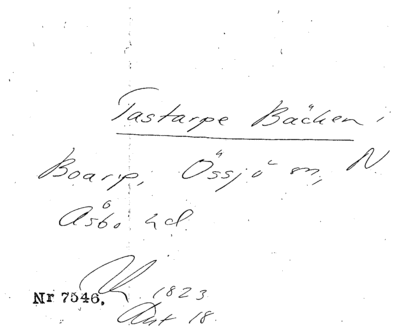 Tastarpe Bäcken i
Boarp, Össjö sn, N.
Åsbo hd
Nr 7546. 1823
Akt 18.